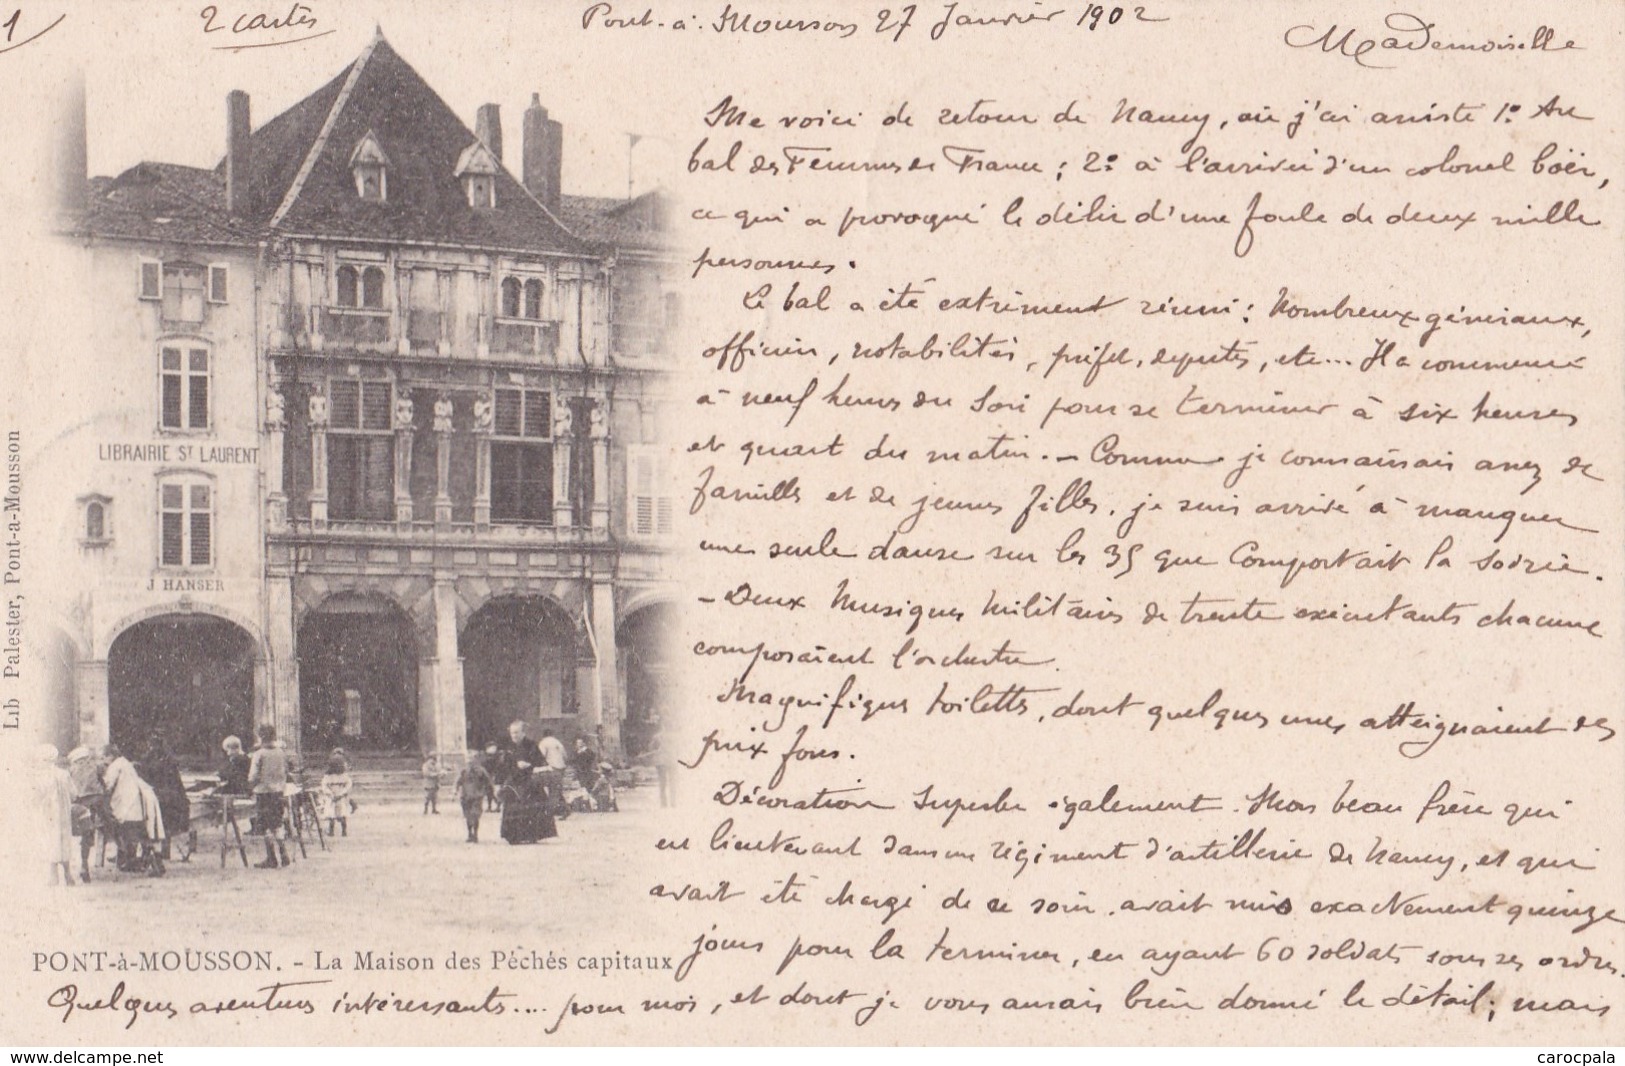 1
2 cartes
Pont-à-Mousson 27 Janvier 1902
Mademoiselle
Me voici de retour de Nancy, où j'ai assisté 1º Au
bal des Femmes de France ; 2º à l'arrivée d'un colonel böer,
ce qui a provoqué le délire d'une foule de deux mille
personnes.
Le bal a été extrêment réussi : Nombreux généraux,
officiers, notabilités, préfet, députés, etc... Il a commencé
à neuf heures du soir pour se terminer à six heures
et quart du matin. - Comme je connaissais assez de
familles et de jeunes filles, je suis arrivé à manquer
une seule danse sur les 35 que comportait la soirée.
- Deux Musiques Militaires de trente exécutants chacune
composaient l'orchestre.
Magnifiques toilettes, dont quelques unes atteignaient des
prix fous.
Décoration superbe également. Mon beau frère qui
est lieutenant dans un régiment d'artillerie de Nancy, et qui
avait été chargé de ce soin, avait mis exactement quinze
jours pour la terminer, en ayant 60 soldats sous ses ordres.
Quelques aventures intéressants.... pour moi, et dont je vous aurais bien donné le détail ; mais
LIBRAIRIE ST LAURENT
J HANSER
Lib Palester, Pont-à-Mousson
PONT-à-MOUSSON. - La Maison des Péchés capitaux
delcampe.net
carocpala